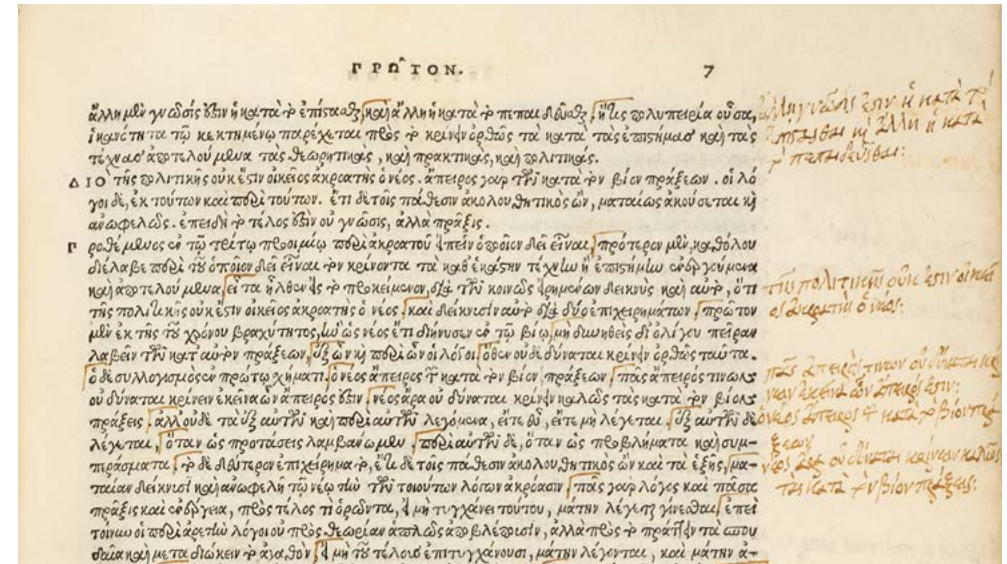 ΠΡΩ͂ΤΟΝ. 7
ἄλλη μὲν γνῶσίς ἐστιν ἡ κατὰ τὸ ἐπίστασθαι, καὶ ἄλλη ἡ κατὰ τὸ πεπαιδεῦσθαι, ἥτις πολυπειρία οὖσα,
ἱκανότητα τῷ κεκτημένῳ παρέχεται πρὸς τὸ κρίνειν ὀρθῶς τὰ κατὰ τὰς ἐπιστήμας καὶ τὰς
τέχνας ἀποτελούμενα τὰς θεωρητικὰς, καὶ πρακτικὰς, καὶ πολιτικάς.
ΔΙΟ τῆς πολιτικῆς οὐκ ἔστιν οἰκεῖος ἀκροατὴς ὁ νέος. ἄπειρος γὰρ τῶν κατὰ τὸν βίον πράξεων. οἱ λό
γοι δὲ, ἐκ τούτων καὶ περὶ τούτων. ἔτι δὲ τοῖς πάθεσιν ἀκολουθητικὸς ὢν, ματαίως ἀκούσεται καὶ
ἀνωφελῶς. ἐπειδὴ τὸ τέλος ἐστὶν οὐ γνῶσις, ἀλλὰ πρᾶξις.
Προθέμενος ἐν τῷ τρίτῳ προοιμίῳ περὶ ἀκροατοῦ εἰπεῖν ὁποῖον δεῖ εἶναι, πρότερον μὲν, καθόλου
διέλαβε περὶ τοῦ ὁποῖον δεῖ εἶναι τὸν κρίνοντα τὰ καθ' ἑκάστην τέχνην ἢ ἐπιστήμην ἐνεργούμενα
καὶ ἀποτελούμενα, εἶτα ἦλθεν εἰς τὸ προκείμενον, διὰ τῶν κοινῶς εἰρημένων δεικνὺς καὶ αὐτὸ, ὅτι
τῆς πολιτικῆς οὐκ ἔστιν οἰκεῖος ἀκροατὴς ὁ νέος. καὶ δείκνυσιν αὐτὸ διὰ δύο ἐπιχειρημάτων, πρῶτον
μὲν ἐκ τῆς τοῦ χρόνου βραχύτητος, ἣν ὡς νέος ἔτι διήνυσεν ἐν τῷ βίῳ, μὴ δυνηθεὶς δι' ὀλίγου πεῖραν
λαβεῖν τῶν κατ' αὐτὸν πράξεων, ἐξ ὧν καὶ περὶ ὧν οἱ λόγοι, ὅθεν οὐδὲ δύναται κρίνειν ὀρθῶς ταῦτα.
ὁ δὲ συλλογισμὸς ἐν πρώτῳ σχήματι. ὁ νέος ἄπειρος τῶν κατὰ τὸν βίον πράξεων, πᾶς ἄπειρός τινων
οὐ δύναται κρίνειν ἐκεῖνα ὧν ἄπειρός ἐστιν, νέος ἄρα οὐ δύναται κρίνειν καλῶς τὰς κατὰ τὸν βίον
πράξεις. ἀλλ' οὐδὲ τὰ ἐξ αὐτῶν καὶ περὶ αὐτῶν λεγόμενα, εἴτε εὖ, εἴτε μὴ λέγεται. ἐξ αὐτῶν δὲ
λέγεται, ὅταν ὡς προτάσεις λαμβάνωμεν, περὶ αὐτῶν δὲ, ὅταν ὡς προβλήματα καὶ συμ-
περάσματα, τὸ δὲ δεύτερον ἐπιχείρημα τὸ, ἔτι δὲ τοῖς πάθεσιν ἀκολουθητικὸς ὢν καὶ τὰ ἑξῆς, μα-
ταίαν δείκνυσι καὶ ἀνωφελῆ τῷ νέῳ τὴν τῶν τοιούτων λόγων ἀκρόασιν, πᾶς γὰρ λόγος καὶ πᾶσα
πρᾶξις καὶ ἐνέργεια, πρὸς τέλος τι ὁρῶντα, εἰ μὴ τυγχάνει τούτου, μάτην λέγεται γίνεσθαι, ἐπεὶ
τοίνυν οἱ περὶ ἀρετῶν λόγοι οὐ πρὸς θεωρίαν ἁπλῶς ἀποβλέπουσιν, ἀλλὰ πρὸς τὸ πράττειν τὰ σπου
δαῖα καὶ μεταδιώκειν τὸ ἀγαθὸν, εἰ μὴ τοῦ τέλους ἐπιτυγχάνουσι, μάτην λέγονται, καὶ μάτην ἀ-
ἄλλη γνῶσίς ἐστιν ἡ κατὰ τὸ
ἐπίστασθαι καὶ ἄλλη ἡ κατὰ
τὸ πεπαιδεῦσθαι:
τῆς πολιτικῆς οὐκ ἔστιν οἰκεῖ
ος ἀκροατὴς ὁ νέος:
πᾶς ἄπειρός τινων οὐ δύναται κρί
νειν ἐκεῖνα ὧν ἄπειρός ἐστιν:
ὁ νέος ἄπειρος τῶν κατὰ τὸν βίον πρά
ξεων
νέος ἄρα οὐ δύναται κρίνειν καλῶς
τὰς κατὰ τὸν βίον πράξεις: